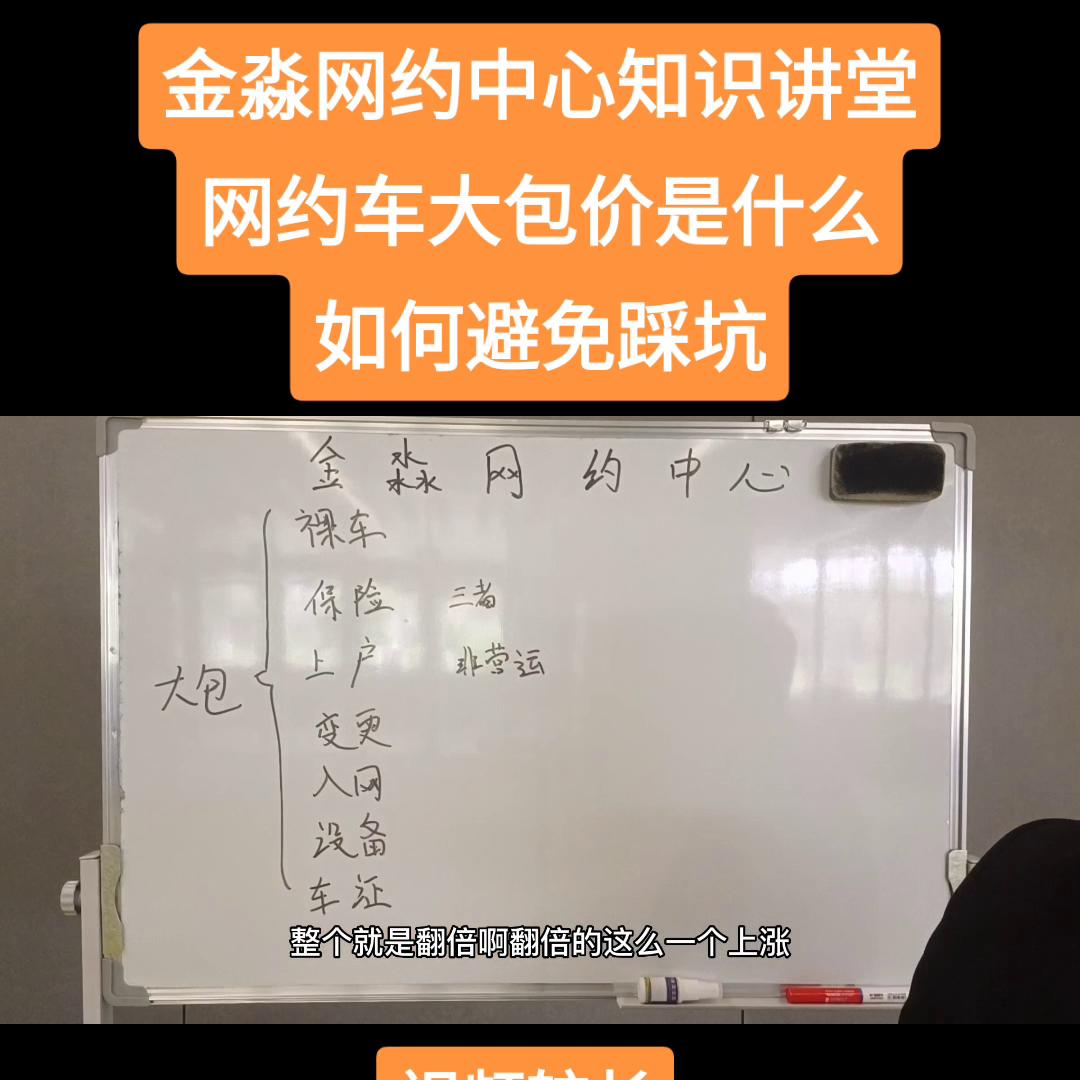 金淼网约中心知识讲堂
网约车大包价是什么
如何避免踩坑
金淼网约中心
裸车
保险 三者
上户 非营运
大包
变更
入网
设备
车证
整个就是翻倍啊翻倍的这么一个上涨
视频较长